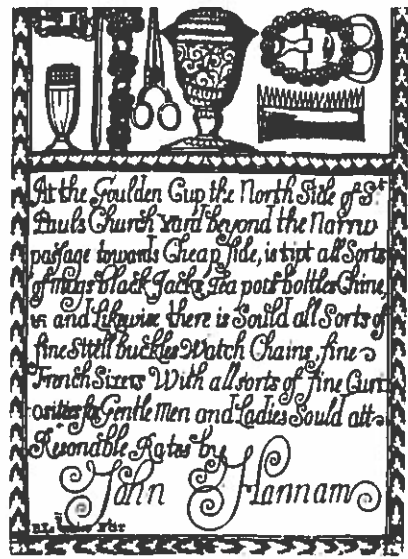 At the Goulden Cup the North Side of St
Pauls Church Yard beyond the Narrw
passage towards Cheap side, is tipt all Sorts
of mugs black Jacks, Tea pots bottles Chine,
and Likwise there is Sould all Sorts of
fine Stell buckles Watch Chains, fine
French Sizers With all sorts of fine Curi
osities for Gentle Men and Ladies Sould att
Resonable Rates by
John Hannam